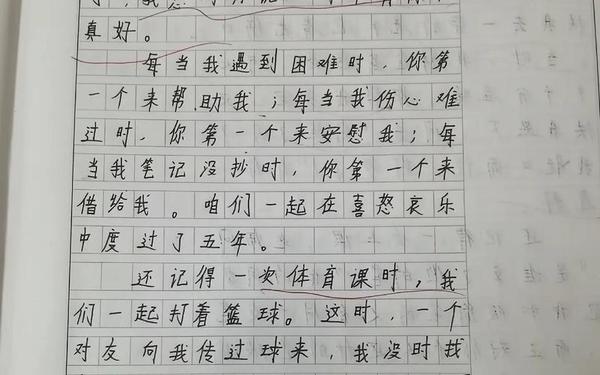 真好。
每当我遇到困难时，你第
一个来帮助我；每当我伤心难
过时，你第一个来安慰我；每
当我笔记没抄时，你第一个来
借给我。咱们一起在喜怒哀乐
中度过了五年。
还记得一次体育课时，我
们一起打着篮球。这时，一个
对友向我传过球来，我没时找